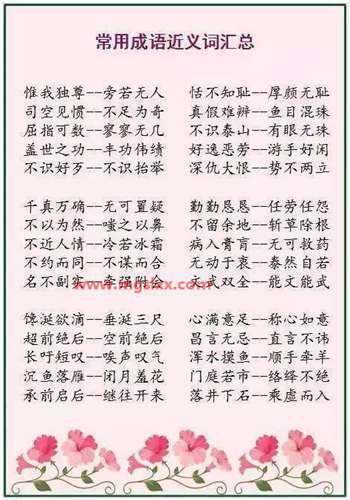 常用成语近义词汇总
惟我独尊--旁若无人 恬不知耻--厚颜无耻
司空见惯--不足为奇 真假难辨--鱼目混珠
屈指可数--寥寥无几 不识泰山--有眼无珠
盖世之功--丰功伟绩 好逸恶劳--游手好闲
不识好歹--不识抬举 深仇大恨--势不两立
千真万确--无可置疑 勤勤恳恳--任劳任怨
不以为然--嗤之以鼻 不留余地--斩草除根
不近人情--冷若冰霜 病入膏肓--无可救药
不约而同--不谋而合 无动于衷--泰然自若
名不副实--牵强附会 文武双全--能文能武
www.mgsxx.com
馋涎欲滴--垂涎三尺 心满意足--称心如意
超前绝后--空前绝后 昌言无忌--直言不讳
长吁短叹--唉声叹气 浑水摸鱼--顺手牵羊
沉鱼落雁--闭月羞花 门庭若市--络绎不绝
承前启后--继往开来 落井下石--乘虚而入